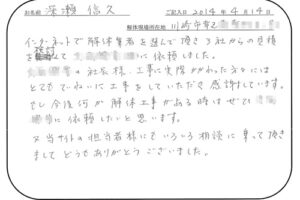 お名前 深瀬 信久 ご記入日 2014年 4月14日
解体現場所在地 川崎市
インターネットで解体業者を選んで頂き3社からの見積
検討して に依頼しました。
の社長様、工事に実際かかわった方々には
とてもていねいに工事をしていただき感謝します。
もし今後何か解体工事がある時はぜひ
に依頼したいと思います。
又当サイトの担当者様にもいろいろ相談に乗って頂き
ましてどうもありがとうございました。